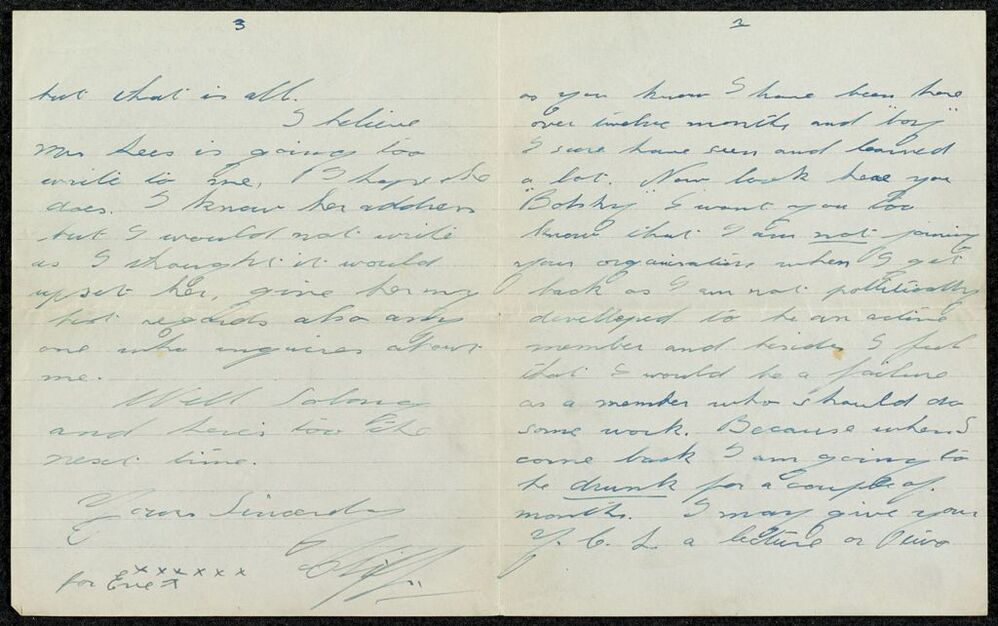 2
as you know I have been here
over twelve months and "boy"
I sure have seen and learned
a lot. Now look here you
"Bolshy" I want you too
know that I am not joining
your organisation when I get
back as I am not politically
develloped to be an active
member and besides I feel
that I would be a failure
as a member who should do
some work. Because when I
come back I am going to
be drunk for a couple of
months. I may give your
Y. C. L a lecture or two
3
but that is all.
I believe
Mrs Lees is going too
write to me, I hope she
does. I know her address
but I would not write
as I thought it would
upset her, give her my
best regards also any
one who inquires about
me.
Well Solong
and here's too the
next time.
Yours Sincerely
Cliff.
xxxxxxx
for Eve